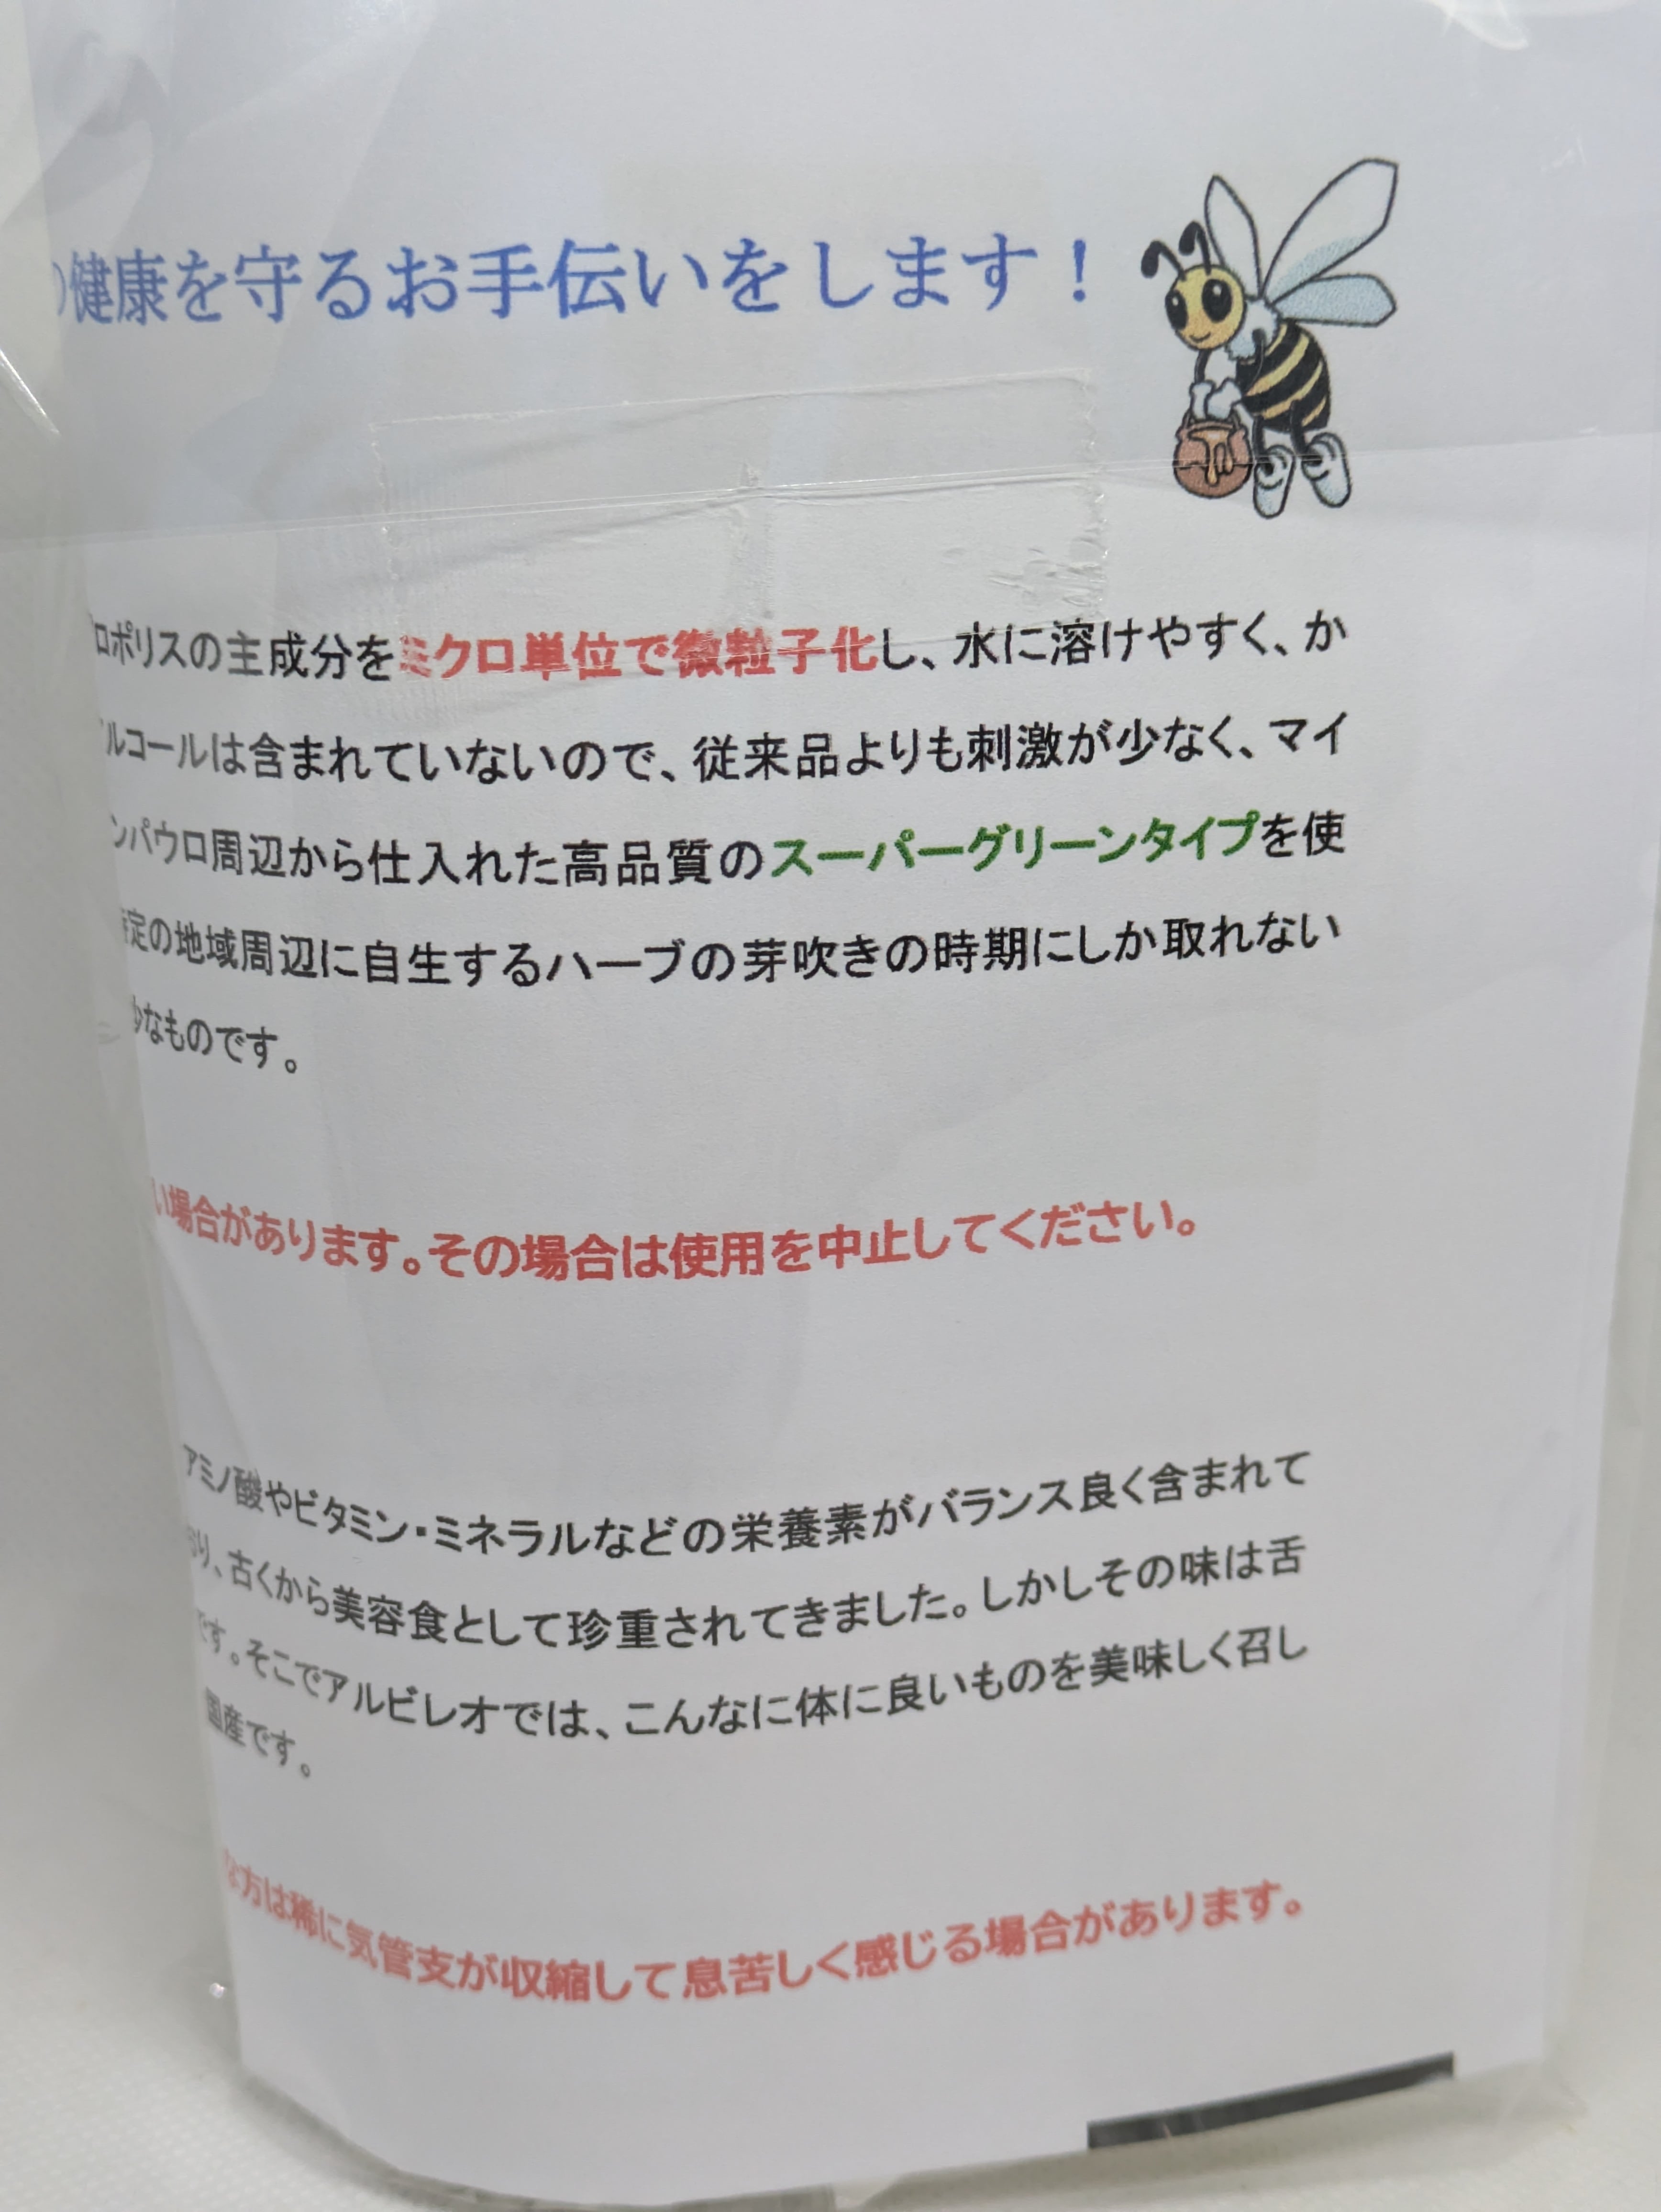 の健康を守るお手伝いをします！
ロポリスの主成分をミクロ単位で微粒子化し、水に溶けやすく、か
ルコールは含まれていないので、従来品よりも刺激が少なく、マイ
ンパウロ周辺から仕入れた高品質のスーパーグリーンタイプを使
定の地域周辺に自生するハーブの芽吹きの時期にしか取れない
少なものです。
い場合があります。その場合は使用を中止してください。
アミノ酸やビタミン・ミネラルなどの栄養素がバランス良く含まれて
おり、古くから美容食として珍重されてきました。しかしその味は舌
です。そこでアルビレオでは、こんなに体に良いものを美味しく召し
国産です。
な方は稀に気管支が収縮して息苦しく感じる場合があります。